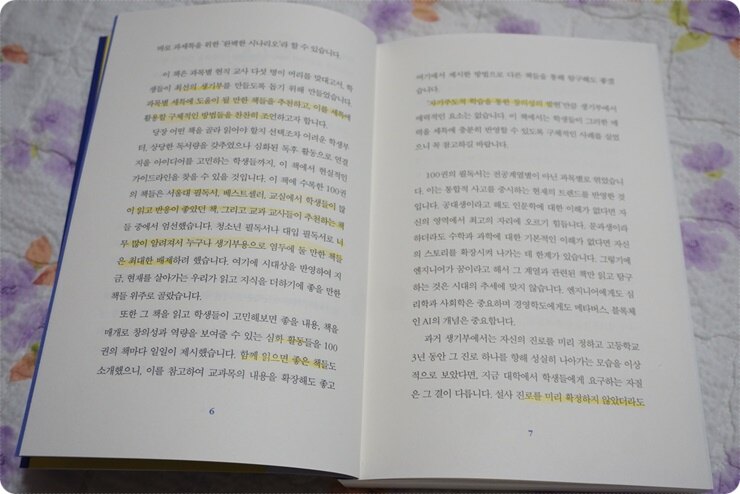 바로 과세특을 위한 '완벽한 시나리오'라 할 수 있습니다.
이 책은 과목별 현직 교사 다섯 명이 머리를 맞대고서, 학
생들이 최선의 생기부를 만들도록 돕기 위해 만들었습니다.
과목별 세특에 도움이 될 만한 책들을 추천하고, 이를 세특에
활용할 구체적인 방법들을 찬찬히 조언하고자 합니다.
당장 어떤 책을 골라 읽어야 할지 선택조차 어려운 학생부
터, 상당한 독서량을 갖추었으나 심화된 독후 활동으로 연결
지을 아이디어를 고민하는 학생들까지, 이 책에서 현실적인
가이드라인을 찾을 수 있을 것입니다. 이 책에 수록한 100권
의 책들은 서울대 필독서, 베스트셀러, 교실에서 학생들이 많
이 읽고 반응이 좋았던 책, 그리고 교과 교사들이 추천하는 책
들 중에서 엄선했습니다. 청소년 필독서나 대입 필독서로 너
무 많이 알려져서 누구나 생기부용으로 염두에 둘 만한 책들
은 최대한 배제하려 했습니다. 여기에 시대상을 반영하여 지
금, 현재를 살아가는 우리가 읽고 지식을 더하기에 좋을 만한
책들 위주로 골랐습니다.
또한 그 책을 읽고 학생들이 고민해보면 좋을 내용, 책을
매개로 창의성과 역량을 보여줄 수 있는 심화 활동들을 100
권의 책마다 일일이 제시했습니다. 함께 읽으면 좋은 책들도
소개했으니, 이를 참고하여 교과목의 내용을 확장해도 좋고
6
여기에서 제시한 방법으로 다른 책들을 통해 탐구해도 좋겠
습니다.
'자기주도적 학습을 통한 창의성의 발현'만큼 생기부에서
매력적인 요소는 없습니다. 이 책에서는 학생들이 그러한 매
력을 세특에 충분히 반영할 수 있도록 구체적인 사례를 실었
으니 꼭 참고하길 바랍니다.
100권의 필독서는 전공계열별이 아닌 과목별로 엮었습니
다. 이는 통합적 사고를 중시하는 현재의 트렌드를 반영한 것
입니다. 공대생이라고 해도 인문학에 대한 이해가 없다면 자
신의 영역에서 최고의 자리에 오르기 힘듭니다. 문과생이라
하더라도 수학과 과학에 대한 기본적인 이해가 없다면 자신
의 스토리를 확장시켜 나가는 데 한계가 있습니다. 그렇기에
엔지니어가 꿈이라고 해서 그 계열과 관련된 책만 읽고 탐구
하는 것은 시대의 추세에 맞지 않습니다. 엔지니어에게도 심
리학과 사회학은 중요하며 경영학도에게도 메타버스, 블록체
인 AI의 개념은 중요합니다.
과거 생기부에서는 자신의 진로를 미리 정하고 고등학교
3년 동안 그 진로 하나를 향해 성실히 나아가는 모습을 이상
적으로 보았다면, 지금 대학에서 학생들에게 요구하는 자질
은 그 결이 다릅니다. 설사 진로를 미리 확정하지 않았더라도
7